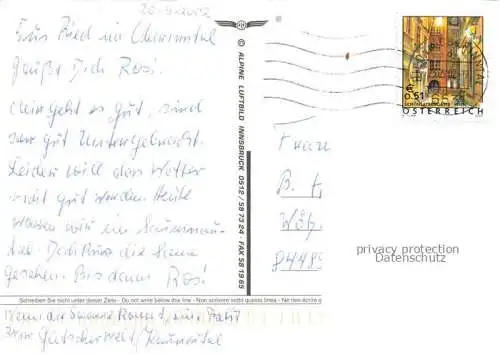 20-9-2002
Aus Ried im
grüßt Dich Rosi.
geht es gut, sind
sehr gut Untergebracht.
Leider will das Wetter
nicht gut werden. Heute
waren wir im
die Sonne
gesehen. Bis dann Rosi
© ALPINE LUFTBILD INNSBRUCK 0512 / 58 73 24 · FAX 58 19 65
€ 0,51
ÖSTERREICH
B.
privacy protection
Datenschutz
Schreiben Sie nicht unter dieser Zeile - Do not write below this line - Non scrivere sotto questa linea - Ne rien écrire
Wenn die Sonne kommt, eine Fahrt
zur Gletscherwelt / Kaunertal